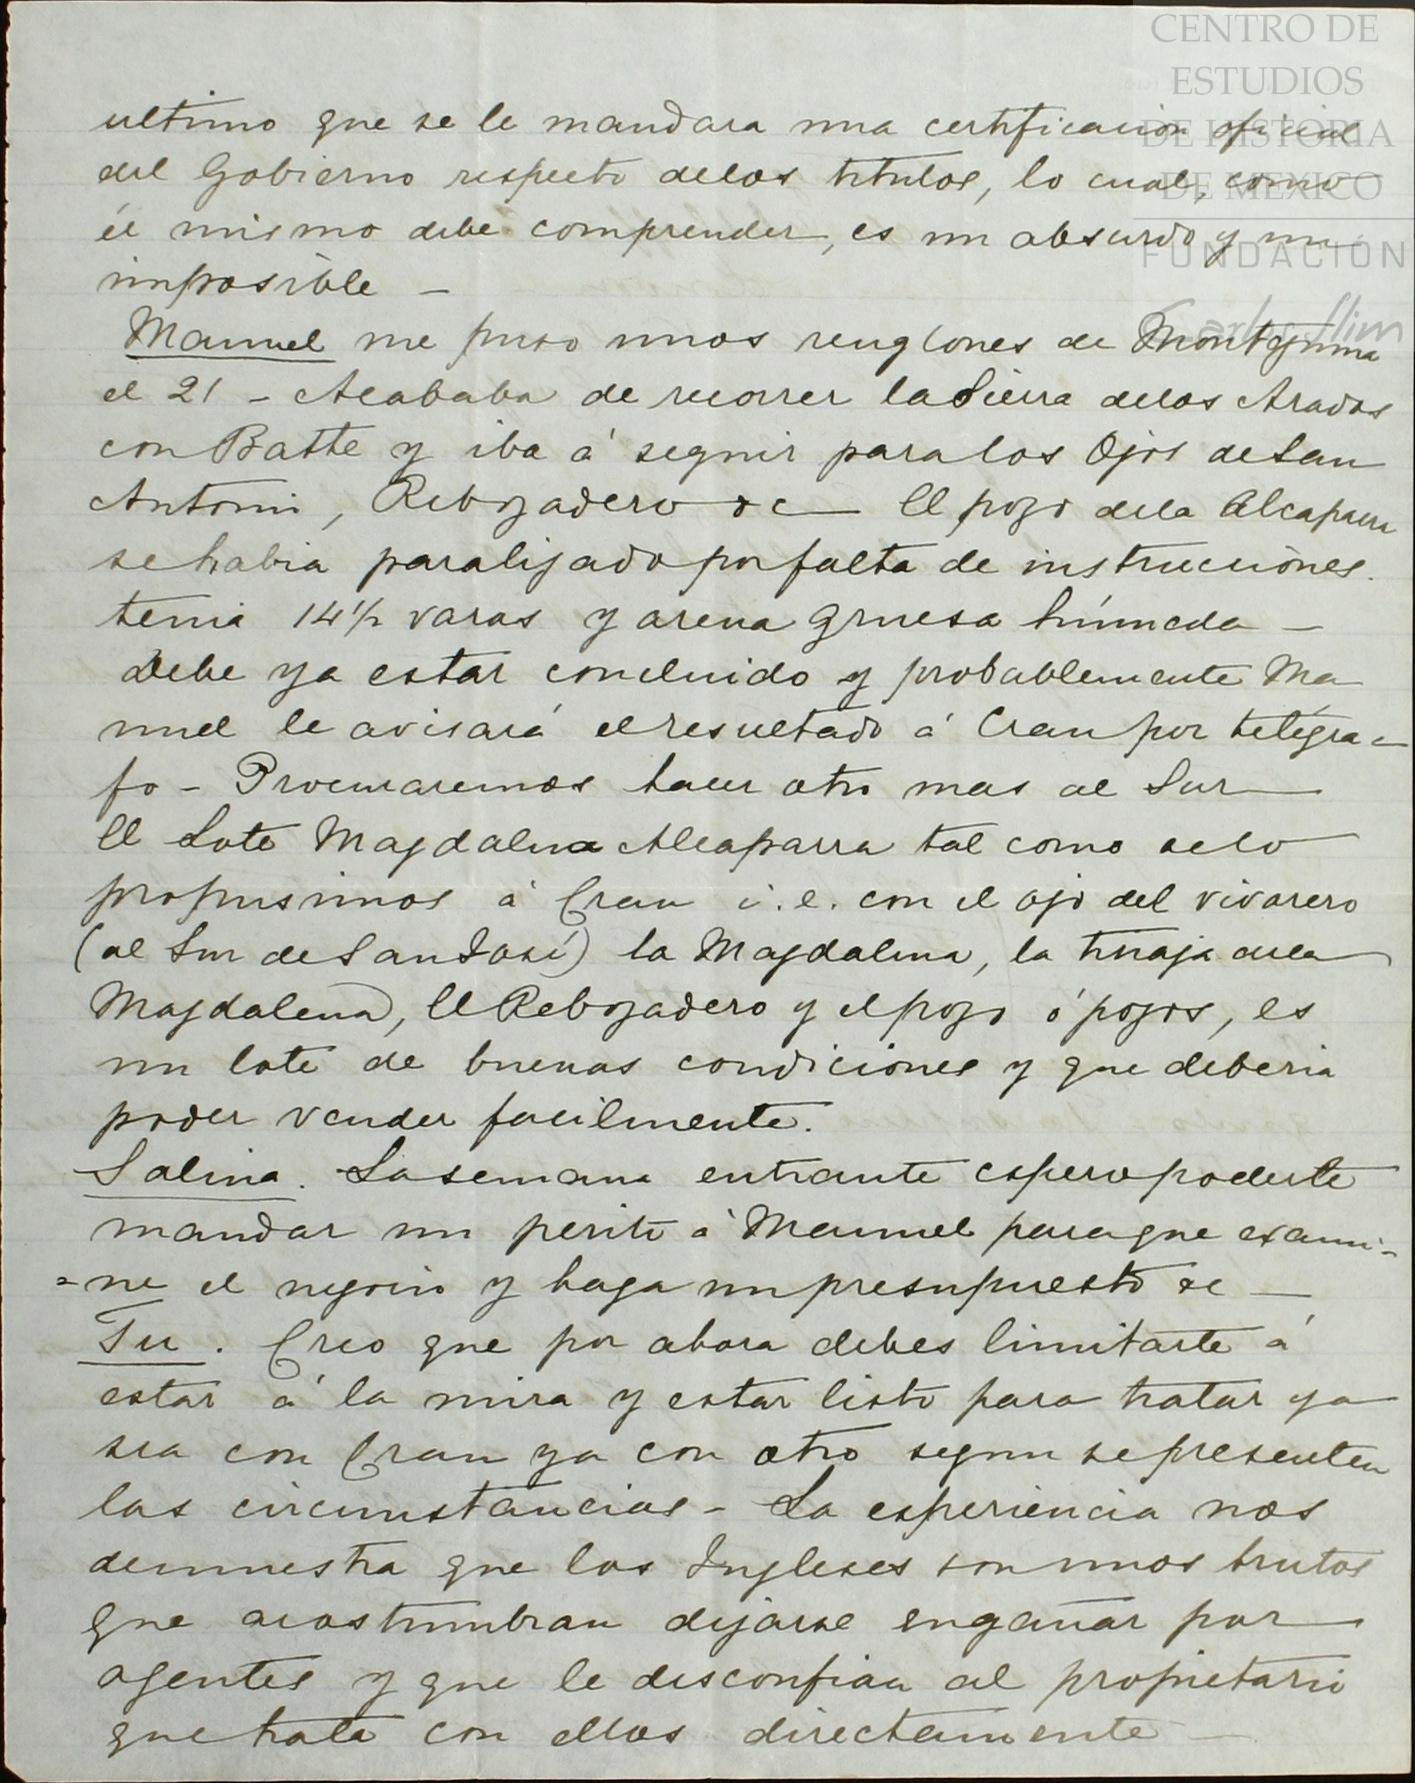 CENTRO DE
ESTUDIOS
DE HISTORIA
DE MEXICO
FUNDACION
Carlos Slim
ultimo que se le mandara una certificacion oficial
del Gobierno respecto delos titulos, lo cual, como
él mismo debe comprender, es un absurdo y un
imposible _
Manuel me puso unos renglones de Montezuma
el 21 - Acababa de recorrer la Sierra delos Arados
con Batte y iba á seguir para los Ojos de San
Antonio, Rebozadero &c _ El pozo dela Alcaparra
se habia paralizado por falta de instrucciones.
tenia 14 1/2 varas y arena gruesa húmeda _
Debe ya estar concluido y probablemente Ma
nuel le avisará el resultado á Cran por telégra-
fo - Procuraremos hacer otro mas al Sur _
El Lote Magdalena Alcaparra tal como se lo
propusimos á Cran i.e. con el ojo del vivarero
(al Sur de San José) la Magdalena, la tinaja dela
Magdalena, El Rebozadero y el pozo ó pozos, es
un lote de buenas condiciones y que deberia
poder vender facilmente.
Salina. La semana entrante espero poderle
mandar un perito á Manuel para que exami-
=ne el negocio y haga un presupuesto &c _
Tu. Creo que por ahora debes limitarte á
estar á la mira y estar listo para tratar ya
sea con Cran ya con otro segun se presenten
las circunstancias - La esperiencia nos
demuestra que los Ingleses son unos brutos
que acostumbran dejarse engañar por
agentes y que le desconfian al propietario
que trata con ellos directamente _